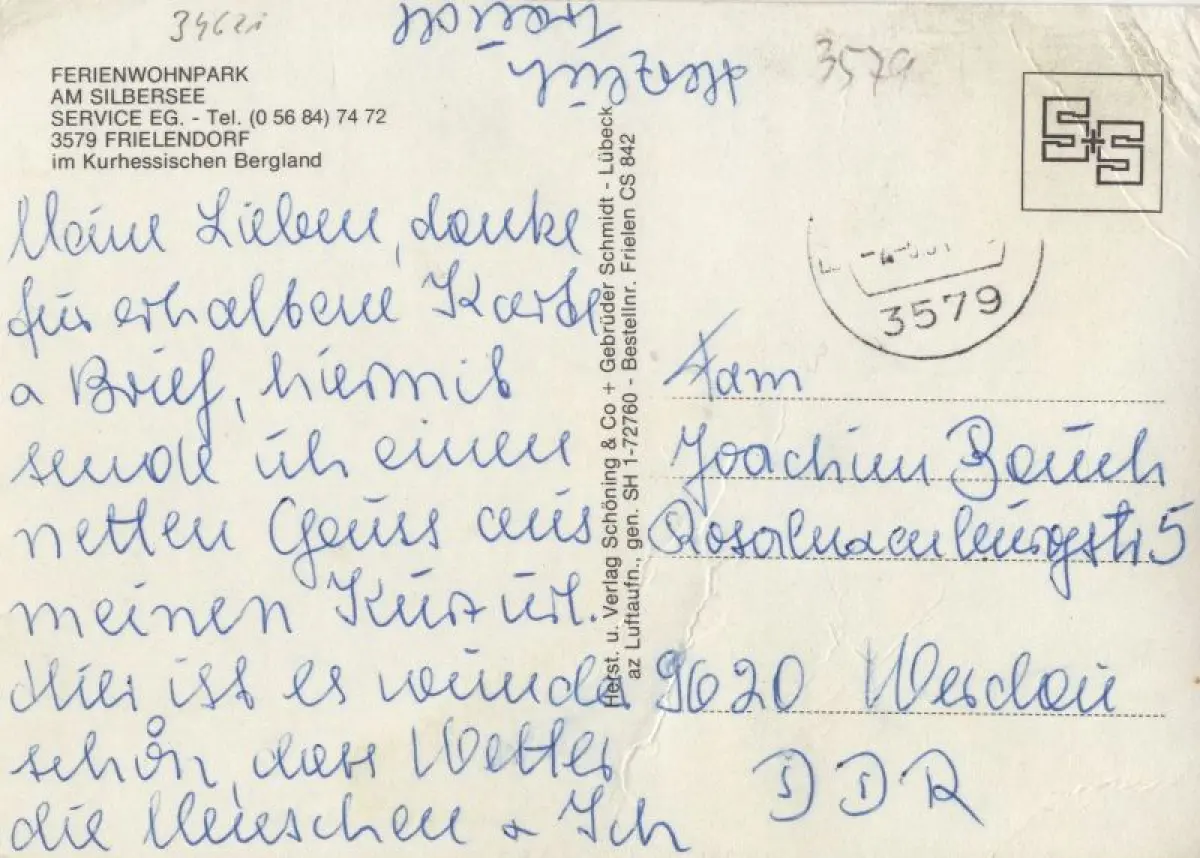 3462i
FERIENWOHNPARK
AM SILBERSEE
SERVICE EG. - Tel. (0 56 84) 74 72
3579 FRIELENDORF
im Kurhessischen Bergland
Meine Lieben, danke
für erhaltene Karte
a Brief, hiermit
sende ich einen
netten Gruss aus
meinen Kurzurl.
Hier ist es wunder
schön, das Wetter
die Menschen + Ich
Herzlich
Traudel
Herst. u. Verlag Schöning & Co + Gebrüder Schmidt - Lübeck
az Luftaufn., gen. SH 1-72760 - Bestellnr. Frielen CS 842
3579
S+S
3579
Fam
Joachim Bauch
Rosaluxemburgstr 5
9620 Werdau
DDR